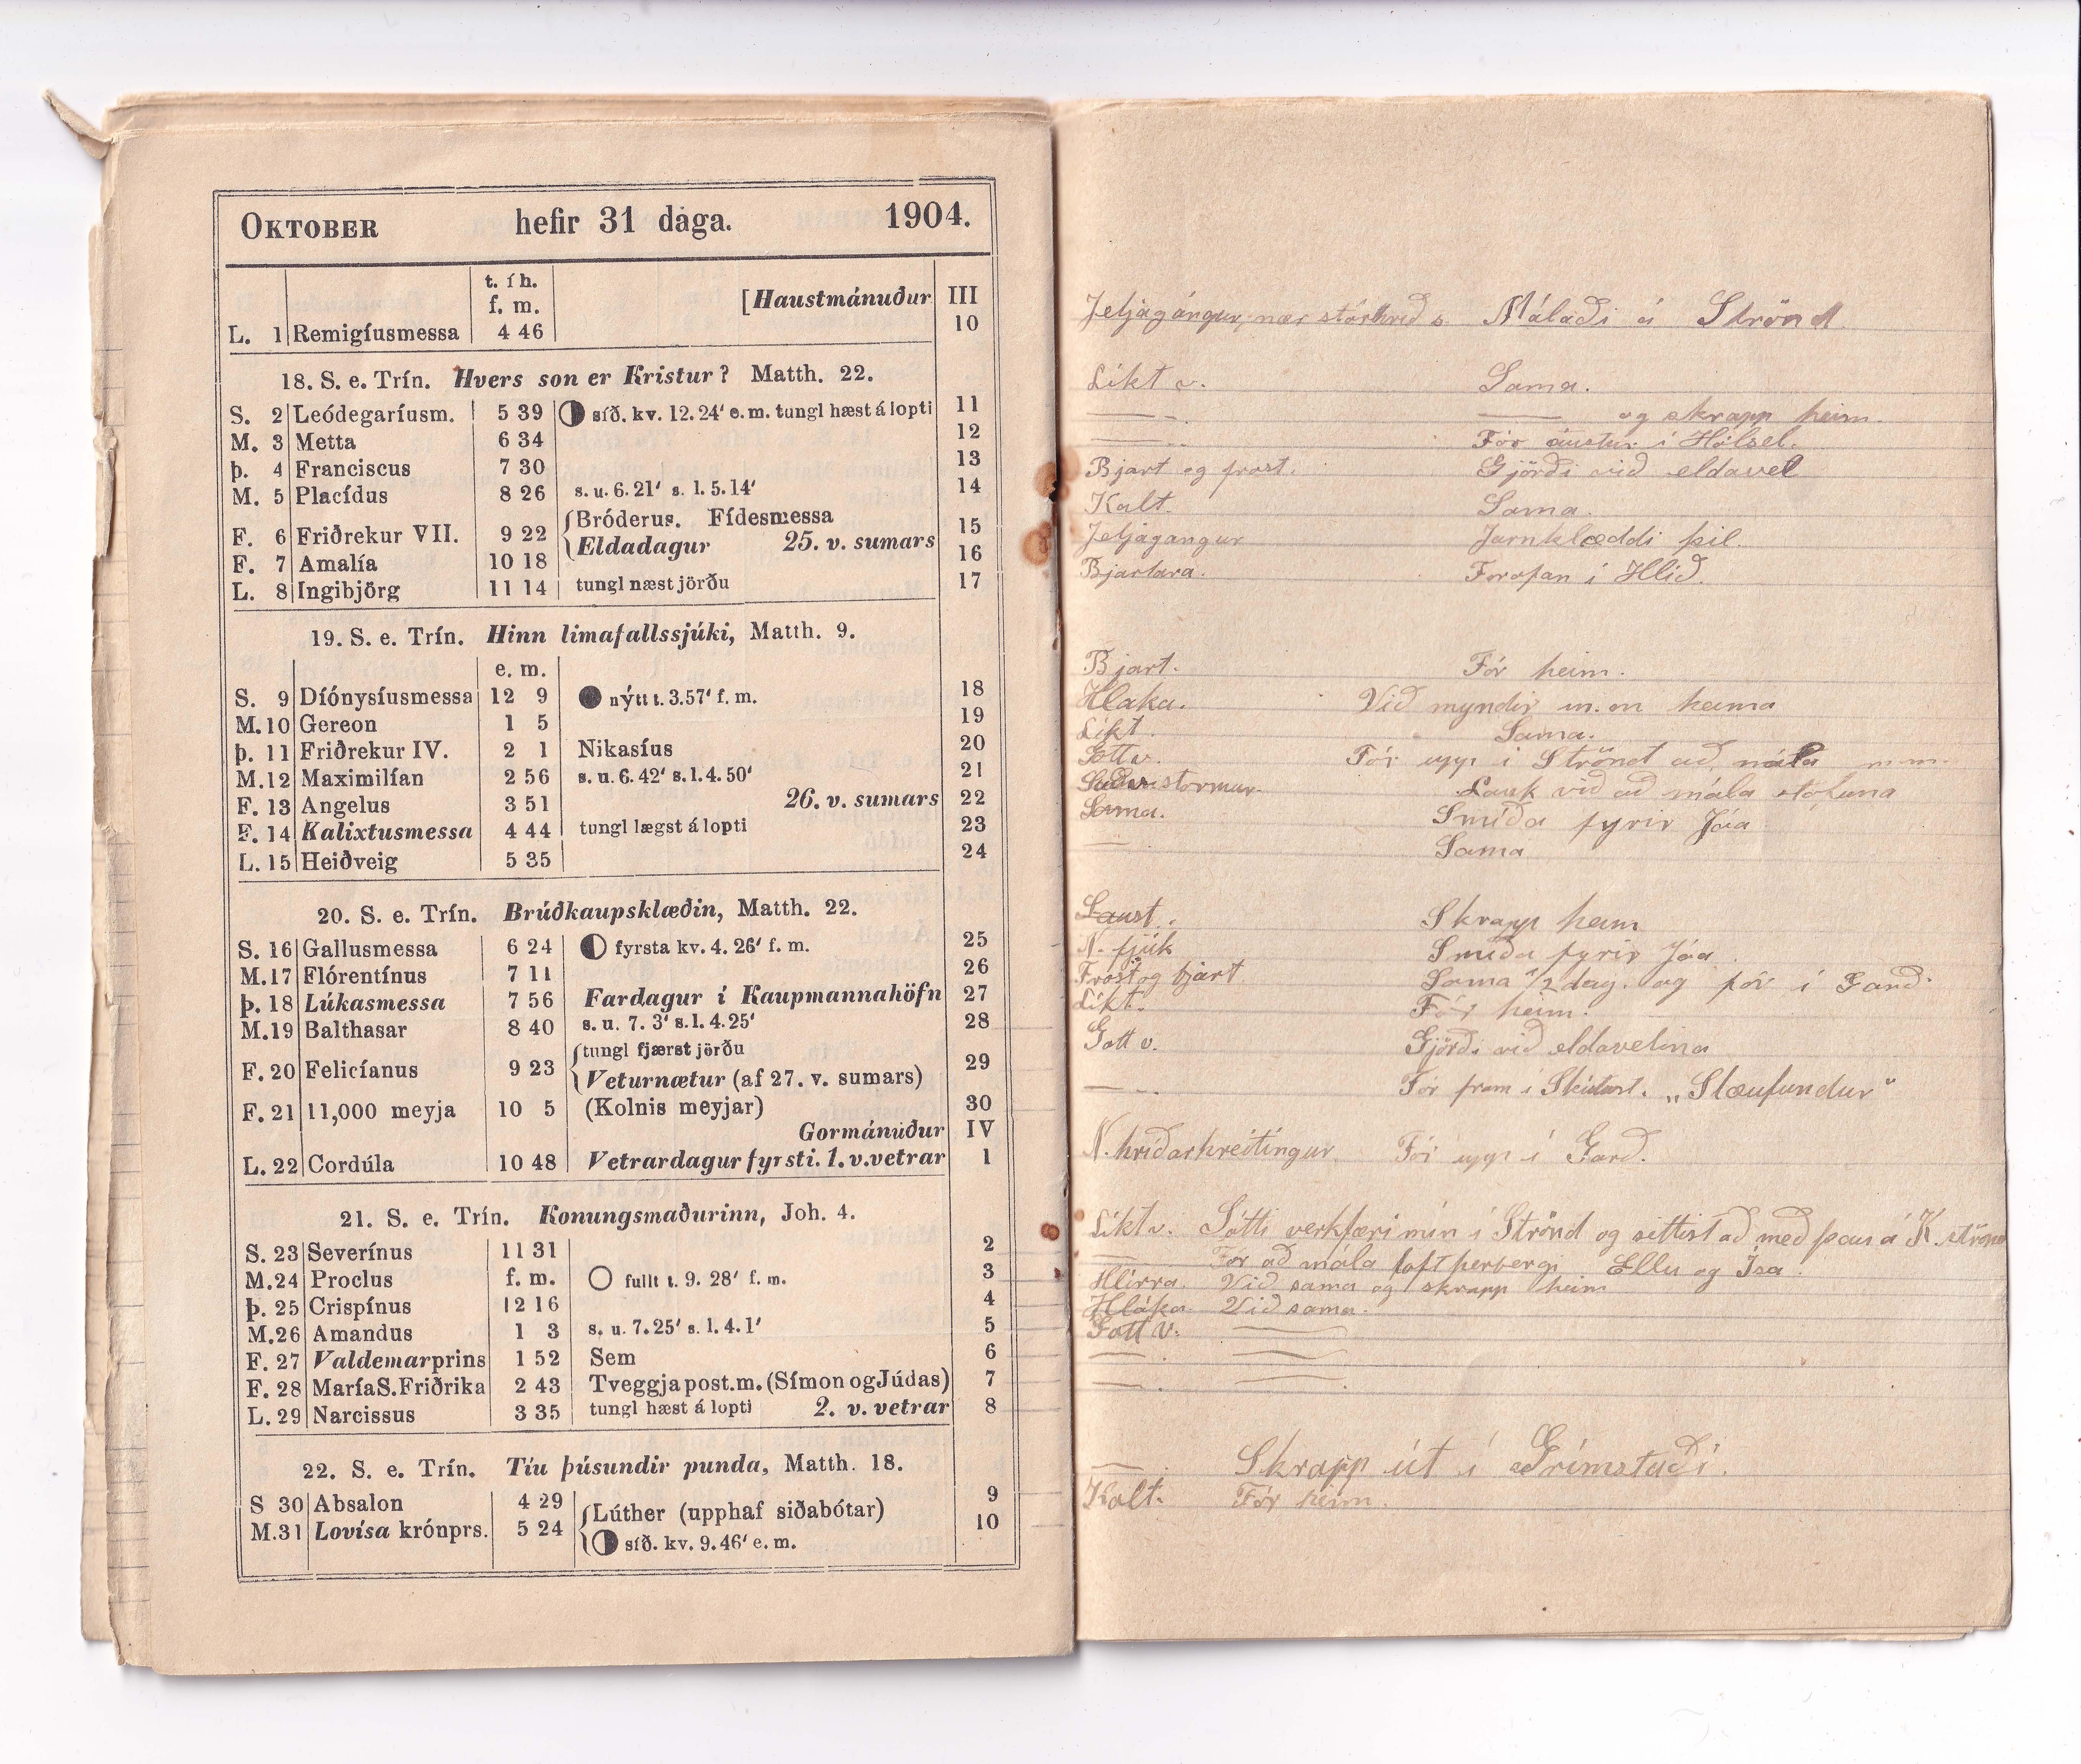 OKTOBER hefir 31 daga. 1904.
t. í h.
f. m. [Haustmánuður III
L. 1 Remigíusmessa 4 46 10
18. S. e. Trín. Hvers son er Kristur? Matth. 22.
S. 2 Leódegaríusm. 5 39 síð. kv. 12. 24' e. m. tungl hæst á lopti 11
M. 3 Metta 6 34 12
Þ. 4 Franciscus 7 30 13
M. 5 Placídus 8 26 s. u. 6. 21' s. l. 5. 14' 14
F. 6 Friðrekur VII. 9 22 Bróderus. Fídesmessa 15
Eldadagur 25. v. sumars
F. 7 Amalía 10 18 16
L. 8 Ingibjörg 11 14 tungl næst jörðu 17
19. S. e. Trín. Hinn limafallssjúki, Matth. 9.
e. m.
S. 9 Díónysíusmessa 12 9 nýtt t. 3.57' f. m. 18
M. 10 Gereon 1 5 19
Þ. 11 Friðrekur IV. 2 1 Nikasíus 20
M. 12 Maximilían 2 56 s. u. 6. 42' s. l. 4. 50' 21
F. 13 Angelus 3 51 26. v. sumars 22
F. 14 Kalixtusmessa 4 44 tungl lægst á lopti 23
L. 15 Heiðveig 5 35 24
20. S. e. Trín. Brúðkaupsklæðin, Matth. 22.
S. 16 Gallusmessa 6 24 fyrsta kv. 4. 26' f. m. 25
M. 17 Flórentínus 7 11 26
Þ. 18 Lúkasmessa 7 56 Fardagur í Kaupmannahöfn 27
M. 19 Balthasar 8 40 s. u. 7. 3' s. l. 4. 25' 28
F. 20 Felicíanus 9 23 tungl fjærst jörðu 29
Veturnætur (af 27. v. sumars)
F. 21 11,000 meyja 10 5 (Kolnis meyjar) 30
Gormánuður IV
L. 22 Cordúla 10 48 Vetrardagur fyrsti. 1. v. vetrar 1
21. S. e. Trín. Konungsmaðurinn, Joh. 4.
S. 23 Severínus 11 31 2
M. 24 Proclus f. m. fullt t. 9. 28' f. m. 3
Þ. 25 Crispínus 12 16 4
M. 26 Amandus 1 3 s. u. 7. 25' s. l. 4. 1' 5
F. 27 Valdemar prins 1 52 Sem 6
F. 28 María S. Friðrika 2 43 Tveggja post. m. (Símon og Júdas) 7
L. 29 Narcissus 3 35 tungl hæst á lopti 2. v. vetrar 8
22. S. e. Trín. Tíu þúsundir punda, Matth. 18.
S 30 Absalon 4 29 Lúther (upphaf siðabótar) 9
M. 31 Lovísa krónprs. 5 24 síð. kv. 9. 46' e. m. 10
Jeljagángur, nær stórhríð Málaði á Strönd
Líkt v. Sama.
og skrapp heim.
Fór austur í Hólsel.
Bjart og frost. Gjörði við eldavel
Kalt. Sama.
Jeljagangur Jarnklæddi þil.
Bjartara. Fór ofan í Hlíð.
Bjart. Fór heim.
Hlaka. Við myndir m. m heima
Líkt. Sama.
Gott v. Fór upp í Strönd að mála m. m.
stormur. Lauk við að mála stofuna
Sama. Smíða fyrir Jóa
Sama
Skrapp heim
N. fjúk Smíða fyrir Jóa
Frost og bjart Sama 1/2 dag. og fór í Garð.
Líkt. Fór heim.
Gott v. Gjörði við eldavelina
Fór fram í
N. hríðarhreitingur. Fór upp í Garð.
Líkt v. Sótti verkfæri mín í Strönd og settist að með þau á K. strönd
Fór að mála loftherbergi Ellu og Ísa.
Hlírra. Við sama og skrapp heim
Hláka. Við sama.
Gott v.
Skrapp út í Grímstaði.
Kalt. Fór heim.